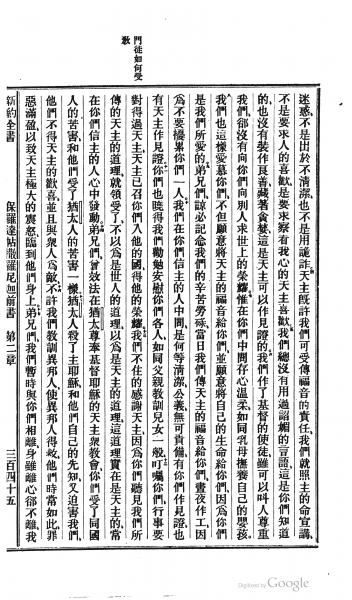 迷惑、不是出於不清潔、也不是用詭詐、天主既許我們可受傳福音的責任、我們就照主的命宣講、
不是要求人的喜歡、是要求察看我心的天主喜歡、我們總沒有用過諂媚的言語、這是你們知道
的、也沒有裝作良善藏著貪婪、這是天主可以作見證的、我們作了基督的使徒、雖可以叫人尊重
我們、卻沒有向你們向別人求世上的榮耀、惟在你們中間存心溫柔、如同乳母撫養自己的嬰孩、
我們也這樣愛慕你們、不但願意將天主的福音給你們、並願意將自己的生命給你們、因為你們
是我們所愛的、弟兄們、諒必記念我們的辛苦勞碌、當日我們傳天主的福音給你們、晝夜作工、因
為不要擾累你們一人、我們在你們信主的人中間、是何等清潔、公義、無可責備、有你們作見證、也
有天主作見證、你們也曉得我們勸勉安慰你們各人、如同父親教訓兒女一般、叮囑你們、行事要
對得過天主、天主已召你們入他的國得他的榮耀、我們不住的感謝天主、因為你們聽見我們所
傳的天主的道理、就領受了、不以為是世人的道理、以為是天主的道理、這道理實在是天主的、常
在你們信主的人心中發動、弟兄們、曾效法在猶太尊奉基督耶穌的天主眾教會、你們受了同國
人的苦害、和他們受了猶太人的苦害一樣、猶太人殺了主耶穌、和他們自己的先知、又迫害我們、
他們不得天主的歡喜、並且與眾人為敵、不許我們教訓異邦人、使異邦人得救、他們時常如此、罪
惡滿盈、以致天主極大的震怒臨到他們身上、弟兄們、我們暫時與你們相離、身雖離心卻不離、我
門徒如何受
教
新約全書 保羅達帖撒羅尼迦前書 第二章 三百四十五
Digitized by Google